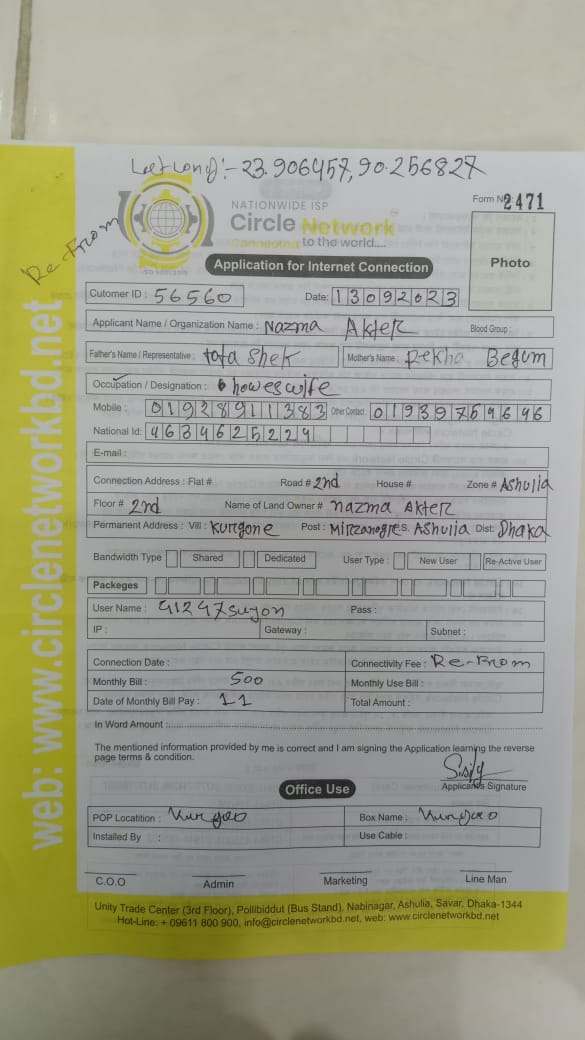 Let Long:- 23.906457, 90.256827
NATIONWIDE ISP
Form No: 2471
Circle Network
Connected to the world....
Re-From
Application for Internet Connection
Photo
Cutomer ID : 56560 Date: 13092023
Applicant Name / Organization Name : Nazma Akter Blood Group :
Father's Name / Representative : tota Shek Mother's Name : Rekha Begum
Occupation / Designation : howeswife
Mobile : 01928911383 Other Contact : 01939759646
National Id: 4634625224
E-mail :
Connection Address : Flat # Road # 2nd House # Zone # Ashulia
Floor # 2nd Name of Land Owner # nazma Akter
Permanent Address : Vill : Kurgone Post : Mirzanogre S. Ashulia Dist: Dhaka
Bandwidth Type Shared Dedicated User Type : New User Re-Active User
Packeges
User Name : 41247suyon Pass :
IP : Gateway : Subnet :
Connection Date : Connectivity Fee : Re-From
Monthly Bill : 500 Monthly Use Bill :
Date of Monthly Bill Pay : 11 Total Amount :
In Word Amount :
The mentioned information provided by me is correct and I am signing the Application learning the reverse
page terms & condition.
Applicants Signature
Office Use
POP Locatition : Box Name :
Installed By : Use Cable :
C.O.O Admin Marketing Line Man
Unity Trade Center (3rd Floor), Pollibiddut (Bus Stand), Nabinagar, Ashulia, Savar, Dhaka-1344
Hot-Line: + 09611 800 900, info@circlenetworkbd.net, web: www.circlenetworkbd.net
web: www.circlenetworkbd.net